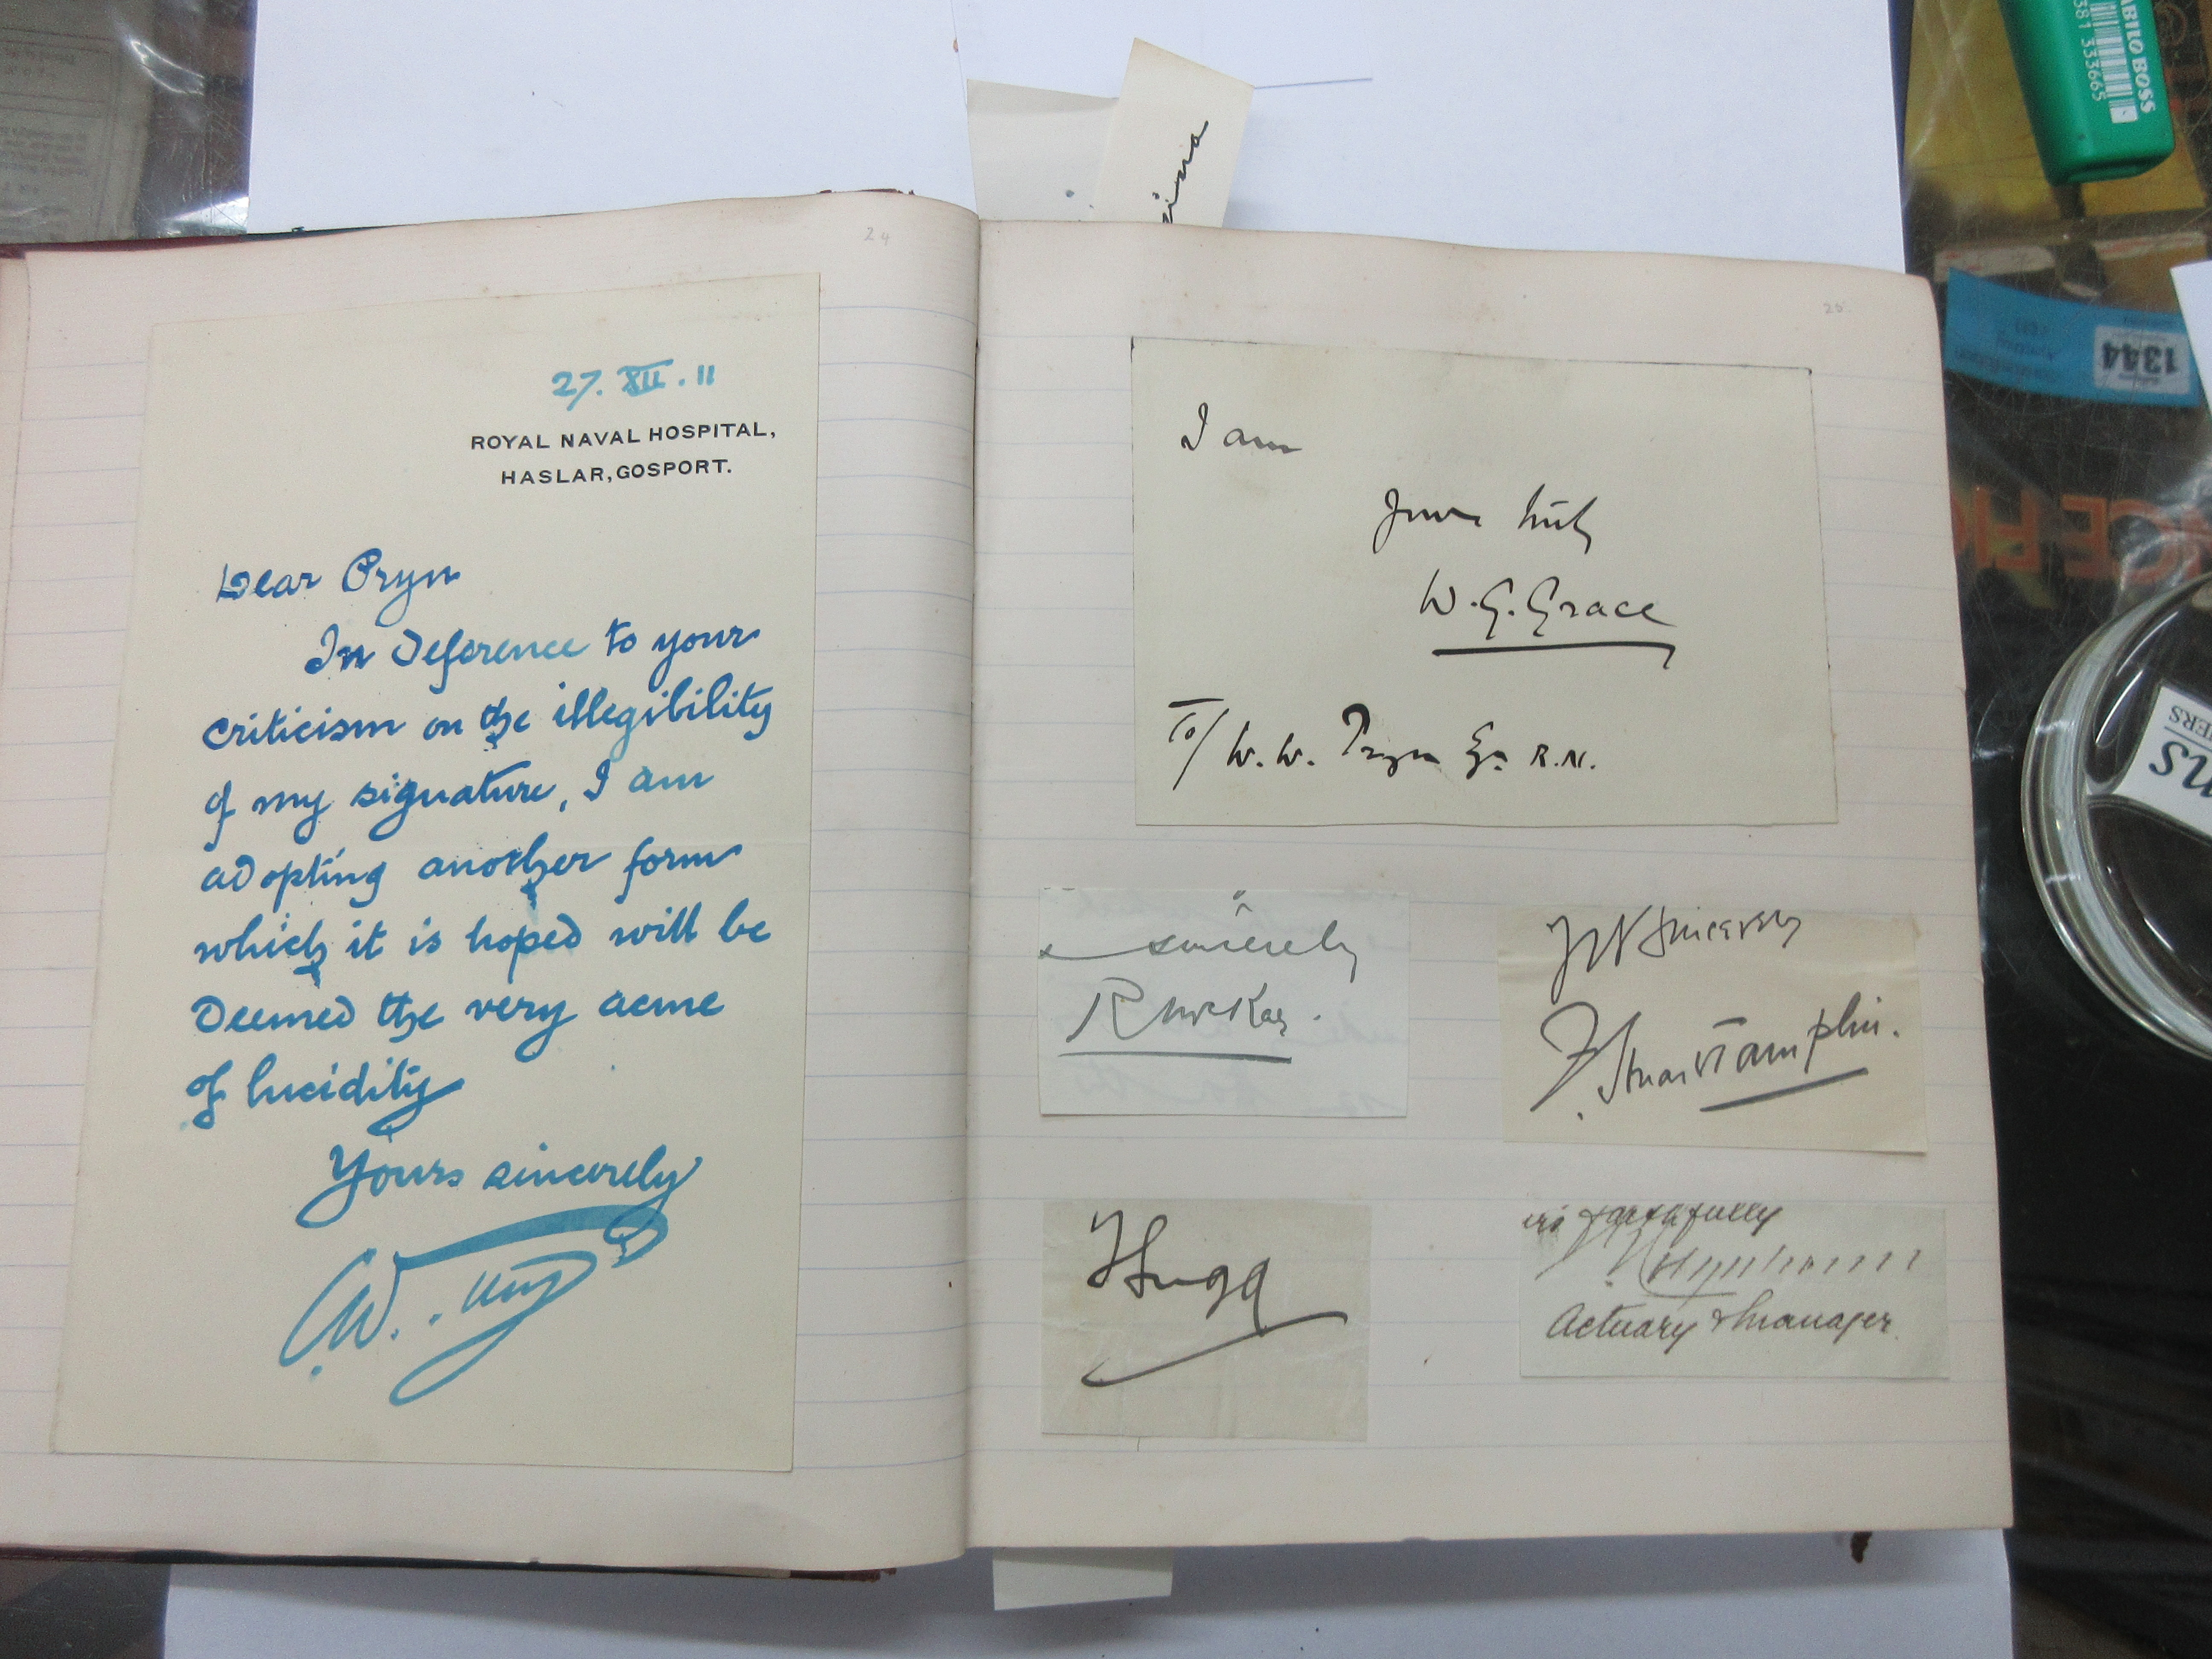 24
27. XII. 11
ROYAL NAVAL HOSPITAL,
HASLAR, GOSPORT.
Dear Pryn
In deference to your
criticism on the illegibility
of my signature, I am
adopting another form
which it is hoped will be
deemed the very acme
of lucidity
Yours sincerely
W.
25
I am
Yours truly
W. G. Grace
To/ W. W. Pryn Esq R.N.
sincerely
R McKay.
Yrs Sincerely
F. Stuart Tamplin.
Hugg
faithfully
Actuary & Manager.
STABILO BOSS
381 33665
1344